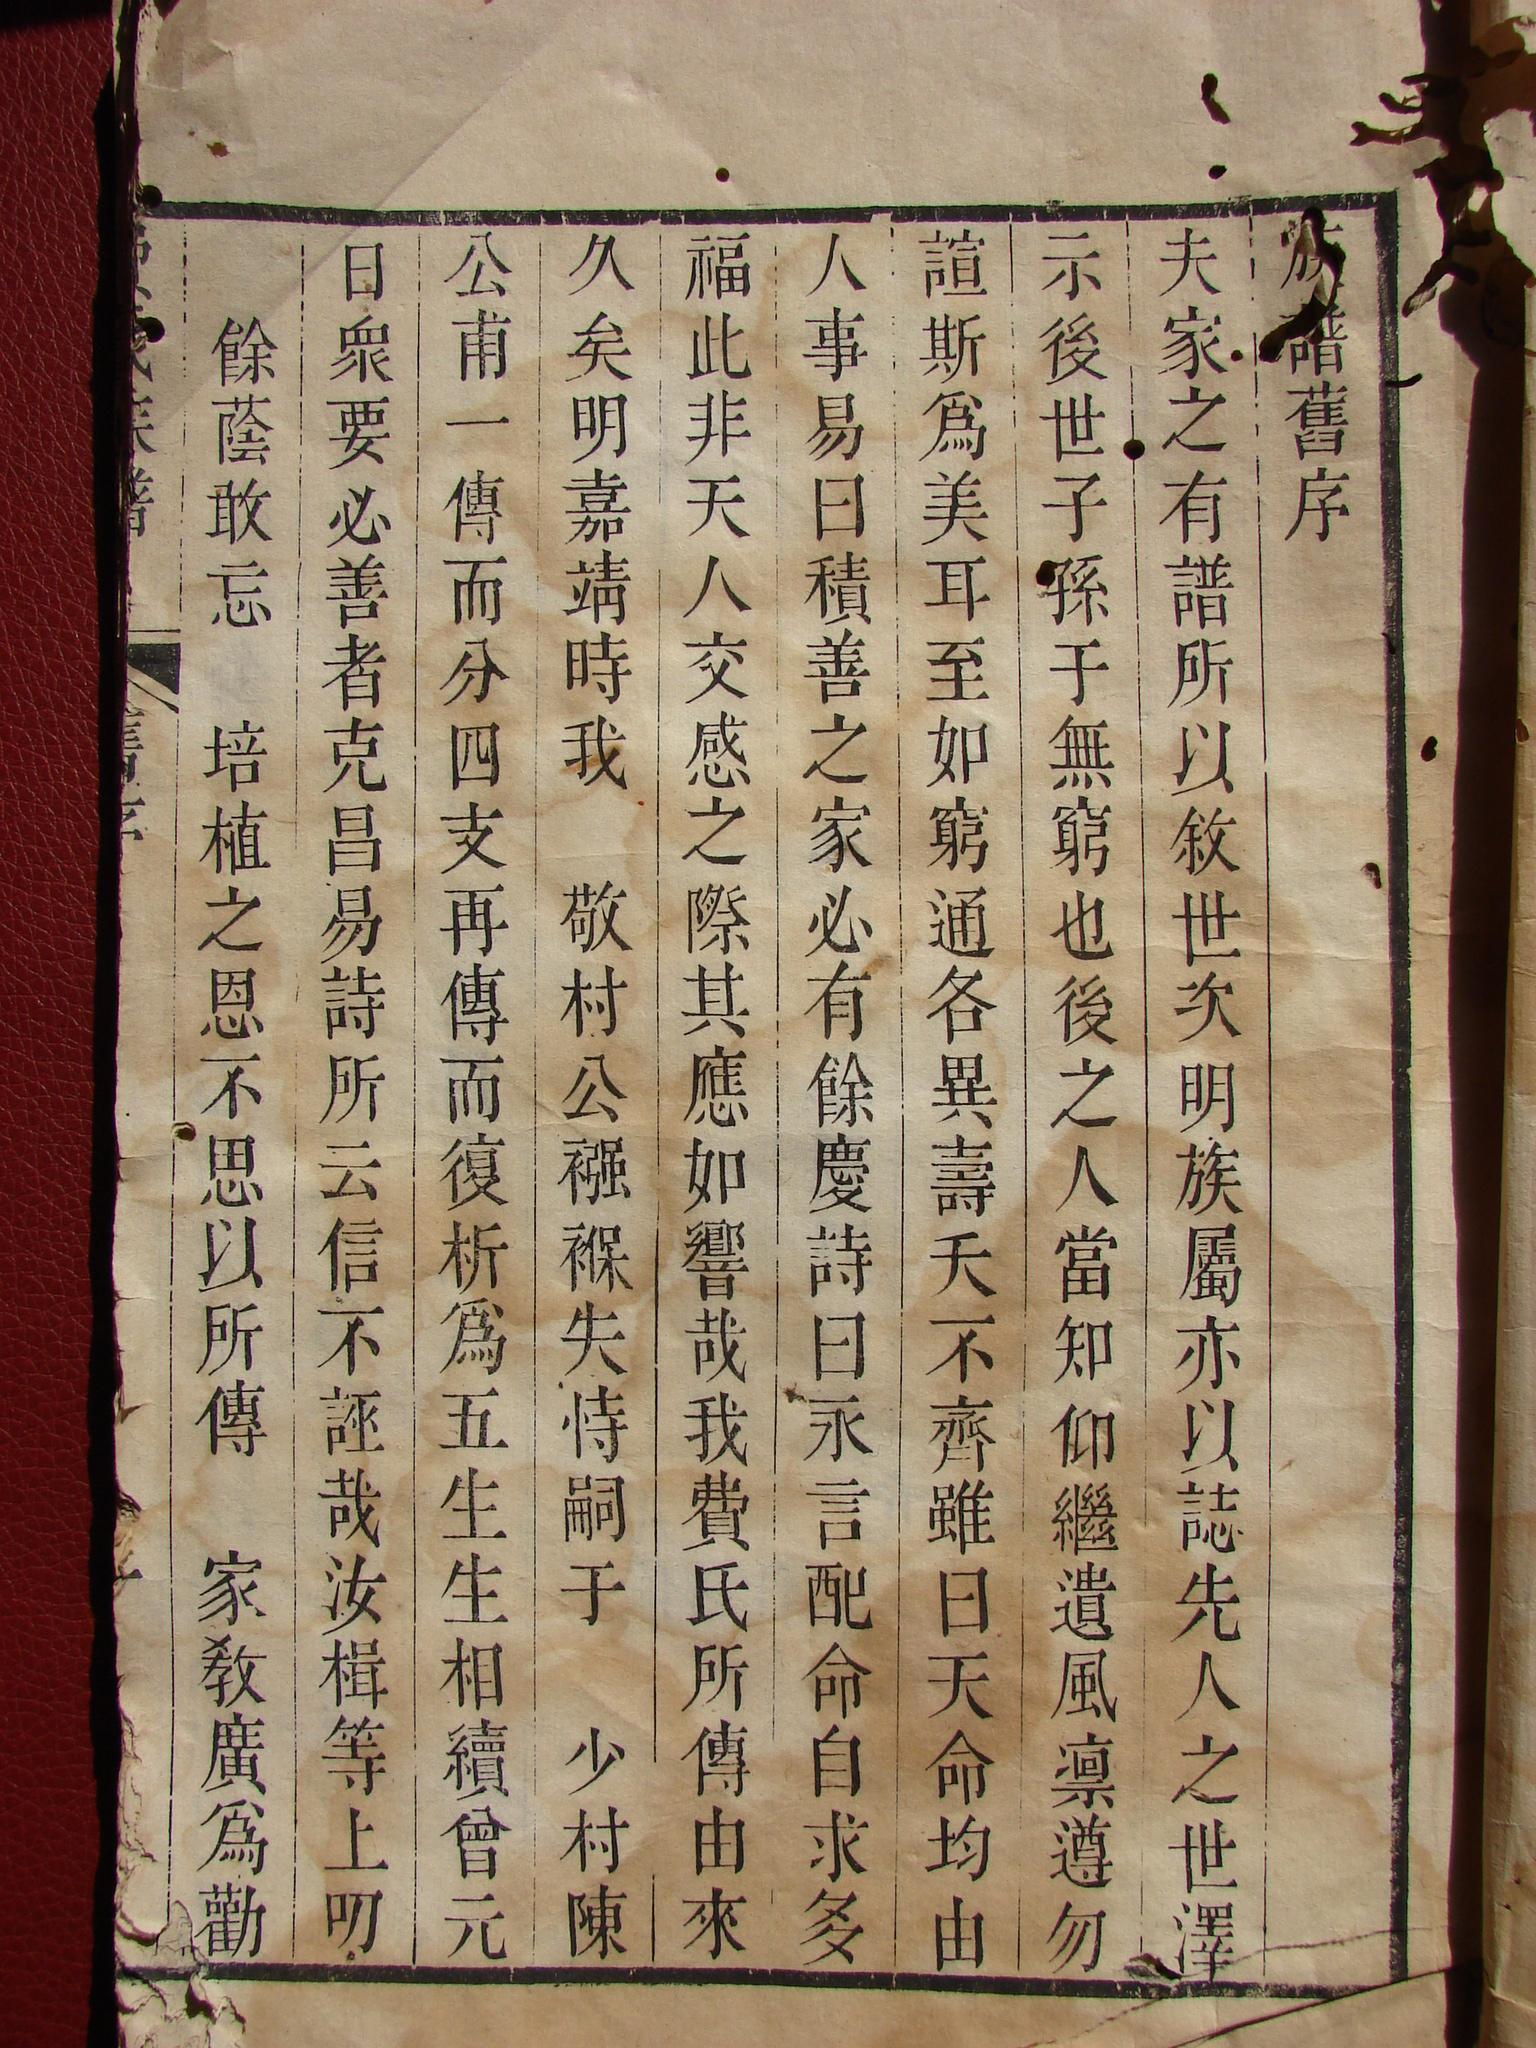 族譜舊序
夫家之有譜所以敘世次明族屬亦以誌先人之世澤
示後世子孫于無窮也後之人當知仰繼遺風凛遵勿
諠斯爲美耳至如窮通各異壽夭不齊雖曰天命均由
人事易曰積善之家必有餘慶詩曰永言配命自求多
福此非天人交感之際其應如響哉我費氏所傳由來
久矣明嘉靖時我 敬村公襁褓失恃嗣于 少村陳
公甫一傳而分四支再傳而復析爲五生生相續曾元
日衆要必善者克昌易詩所云信不誣哉汝楫等上叨
餘蔭敢忘 培植之恩不思以所傳 家教廣爲勸
族譜 舊序